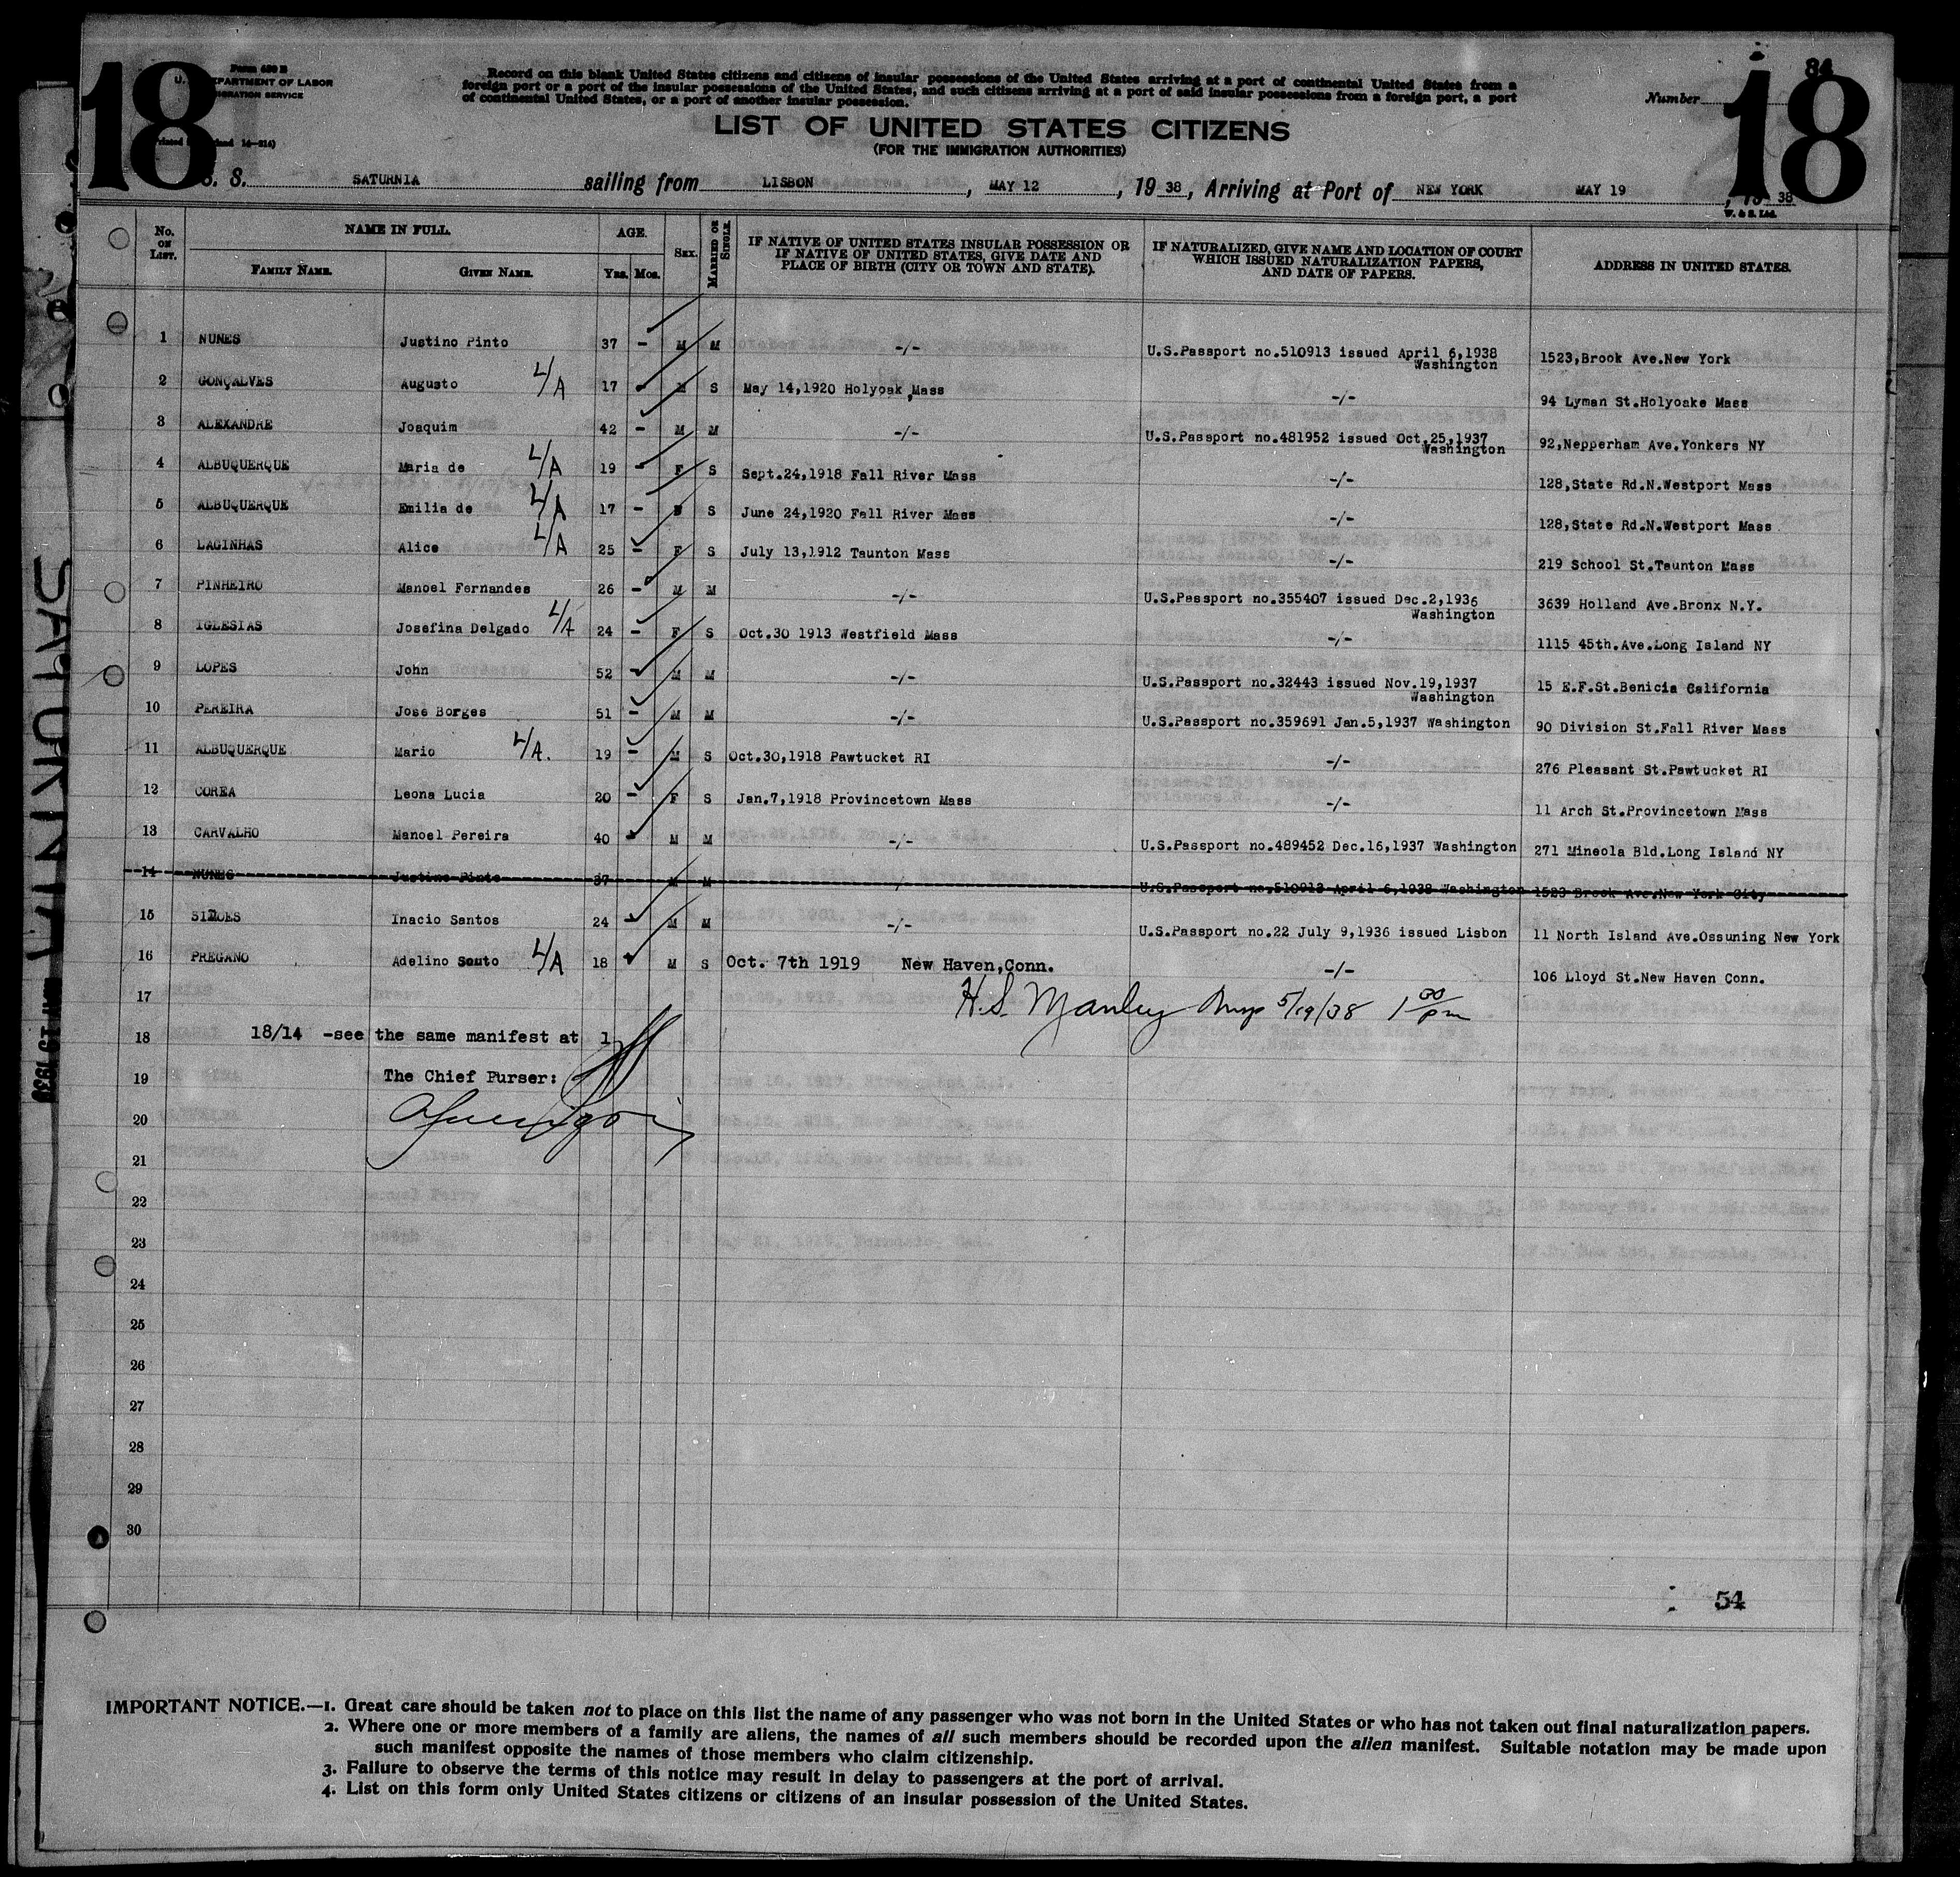 18
Form 630 B
U. DEPARTMENT OF LABOR
IMMIGRATION SERVICE
Record on this blank United States citizens and citizens of insular possessions of the United States arriving at a port of continental United States from a
foreign port or a port of the insular possessions of the United States, and such citizens arriving at a port of said insular possessions from a foreign port, a port
of continental United States, or a port of another insular possession.
84
Number
18
LIST OF UNITED STATES CITIZENS
(FOR THE IMMIGRATION AUTHORITIES)
S. S. SATURNIA sailing from LISBON, MAY 12, 19 38, Arriving at Port of NEW YORK MAY 19, 19 38
W. & S. Ltd.
No. ON LIST. NAME IN FULL. FAMILY NAME. GIVEN NAME. AGE. Yrs. Mos. SEX. MARRIED OR SINGLE. IF NATIVE OF UNITED STATES INSULAR POSSESSION OR IF NATIVE OF UNITED STATES, GIVE DATE AND PLACE OF BIRTH (CITY OR TOWN AND STATE). IF NATURALIZED, GIVE NAME AND LOCATION OF COURT WHICH ISSUED NATURALIZATION PAPERS, AND DATE OF PAPERS. ADDRESS IN UNITED STATES.
1 NUNES Justino Pinto 37 - M M -/- U.S.Passport no.510913 issued April 6,1938 Washington 1523,Brook Ave.New York
2 GONÇALVES Augusto L/A 17 - M S May 14,1920 Holyoak,Mass -/- 94 Lyman St.Holyoake Mass
3 ALEXANDRE Joaquim 42 - M M -/- U.S.Passport no.481952 issued Oct.25,1937 Washington 92,Nepperham Ave.Yonkers NY
4 ALBUQUERQUE Maria de L/A 19 - F S Sept.24,1918 Fall River Mass -/- 128,State Rd.N.Westport Mass
5 ALBUQUERQUE Emilia de L/A 17 - F S June 24,1920 Fall River Mass -/- 128,State Rd.N.Westport Mass
6 LAGINHAS Alice L/A 25 - F S July 13,1912 Taunton Mass -/- 219 School St.Taunton Mass
7 PINHEIRO Manoel Fernandes 26 - M M -/- U.S.Passport no.355407 issued Dec.2,1936 Washington 3639 Holland Ave.Bronx N.Y.
8 IGLESIAS Josefina Delgado L/A 24 - F S Oct.30 1913 Westfield Mass -/- 1115 45th.Ave.Long Island NY
9 LOPES John 52 - M M -/- U.S.Passport no.32443 issued Nov.19,1937 Washington 15 E.F.St.Benicia California
10 PEREIRA Jose Borges 51 - M M -/- U.S.Passport no.359691 Jan.5,1937 Washington 90 Division St.Fall River Mass
11 ALBUQUERQUE Mario L/A. 19 - M S Oct.30,1918 Pawtucket RI -/- 276 Pleasant St.Pawtucket RI
12 COREA Leona Lucia 20 - F S Jan.7,1918 Provincetown Mass -/- 11 Arch St.Provincetown Mass
13 CARVALHO Manoel Pereira 40 - M M -/- U.S.Passport no.489452 Dec.16,1937 Washington 271 Mineola Bld.Long Island NY
14 NUNES Justino Pinto 37 M M U.S.Passport no.510913 April 6,1938 Washington 1523 Brook Ave.New York City
15 SIMOES Inacio Santos 24 - M M -/- U.S.Passport no.22 July 9,1936 issued Lisbon 11 North Island Ave.Ossuning New York
16 PREGANO Adelino Souto L/A 18 M S Oct. 7th 1919 New Haven,Conn. -/- 106 Lloyd St.New Haven Conn.
17 H.S. Manley Insp 5/19/38 1 30 pm
18 18/14 -see the same manifest at 1
19 The Chief Purser:
20
21
22
23
24
25
26
27
28
29
30
54
SATURNIA
MAY 19 1938
IMPORTANT NOTICE.—1. Great care should be taken not to place on this list the name of any passenger who was not born in the United States or who has not taken out final naturalization papers.
2. Where one or more members of a family are aliens, the names of all such members should be recorded upon the alien manifest. Suitable notation may be made upon
such manifest opposite the names of those members who claim citizenship.
3. Failure to observe the terms of this notice may result in delay to passengers at the port of arrival.
4. List on this form only United States citizens or citizens of an insular possession of the United States.